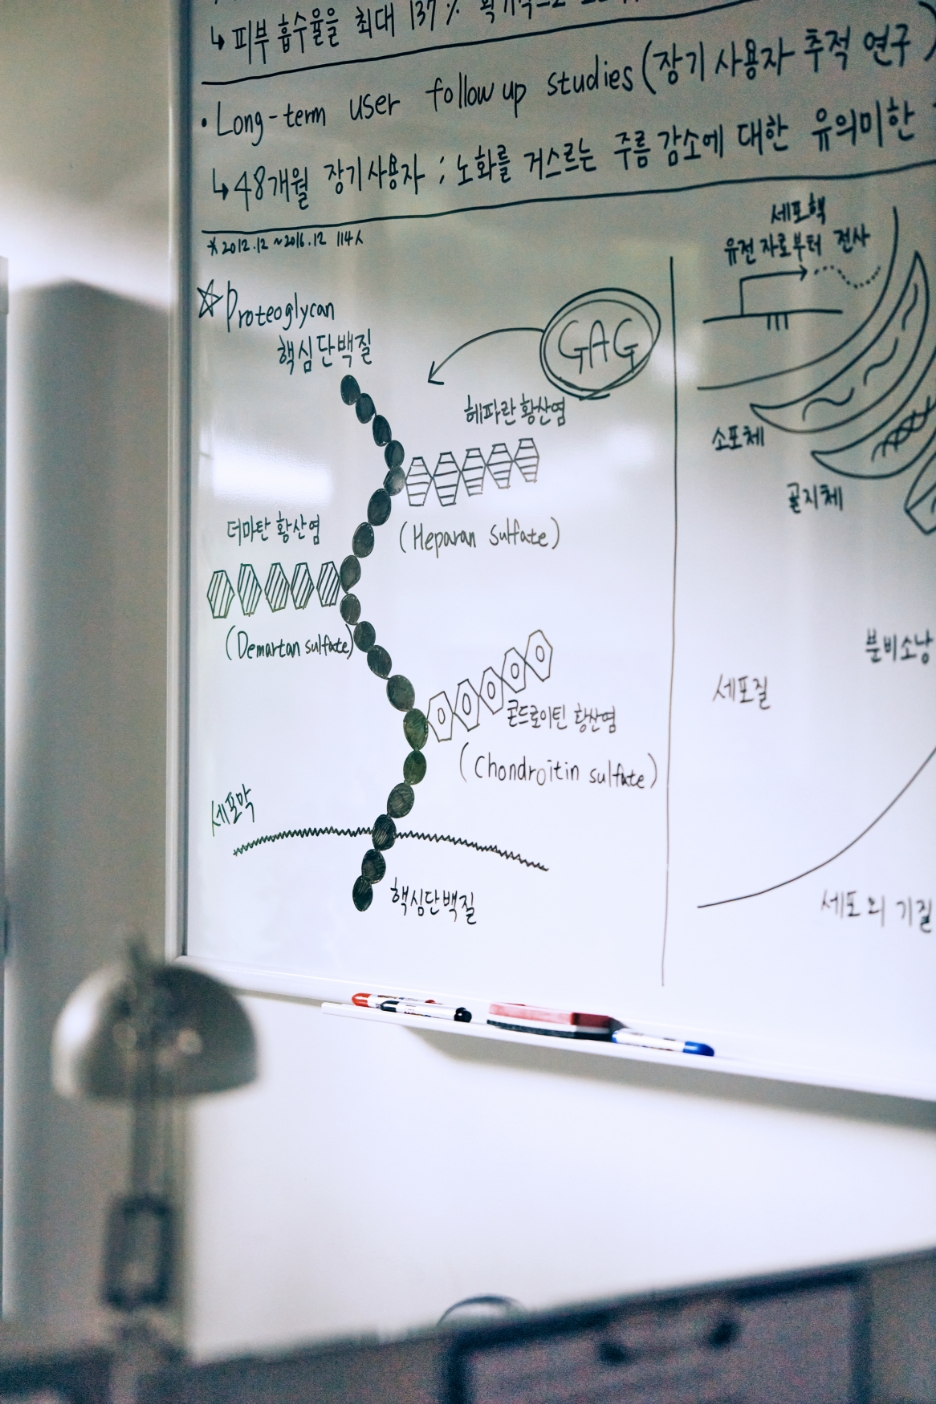 ↳ 피부 흡수율을 최대 137%
• Long-term user follow up studies (장기 사용자 추적 연구)
↳ 48개월 장기사용자 ; 노화를 거스르는 주름 감소에 대한 유의미한
* 2012.12 ~ 2016.12 114人
☆ Proteoglycan
핵심단백질
GAG
헤파란 황산염
(Heparan sulfate)
더마탄 황산염
(Demartan sulfate)
콘드로이틴 황산염
(Chondroitin sulfate)
세포막
핵심단백질
세포핵
유전자로부터 전사
소포체
골지체
분비소낭
세포질
세포외 기질